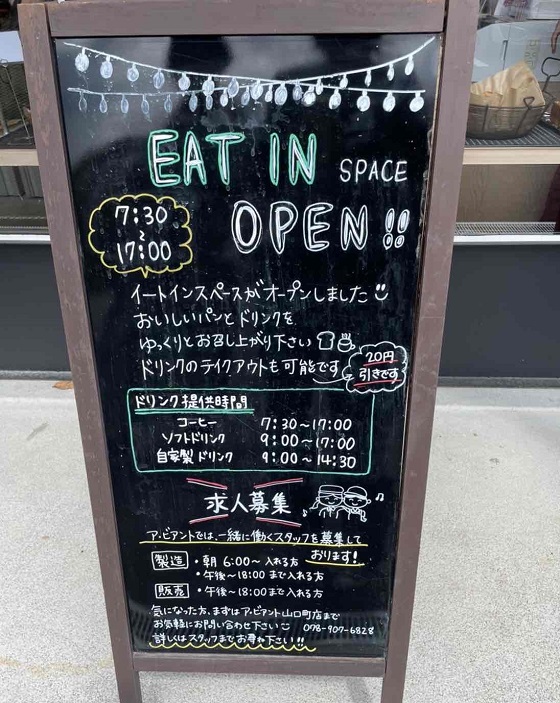 EAT IN SPACE
OPEN!!
7:30
~
17:00
イートインスペースがオープンしました
おいしいパンとドリンクを
ゆっくりとお召し上がり下さい
ドリンクのテイクアウトも可能です
20円
引きです
ドリンク提供時間
コーヒー 7:30~17:00
ソフトドリンク 9:00~17:00
自家製ドリンク 9:00~14:30
求人募集
ア・ビアントでは、一緒に働くスタッフを募集して
おります!
製造 ・朝 6:00~ 入れる方
・午後~18:00まで入れる方
販売 ・午後~18:00まで入れる方
気になった方、まずはア・ビアント山口町店まで
お気軽にお問い合わせ下さい 078-907-6828
詳しくはスタッフまでお尋ね下さい!!